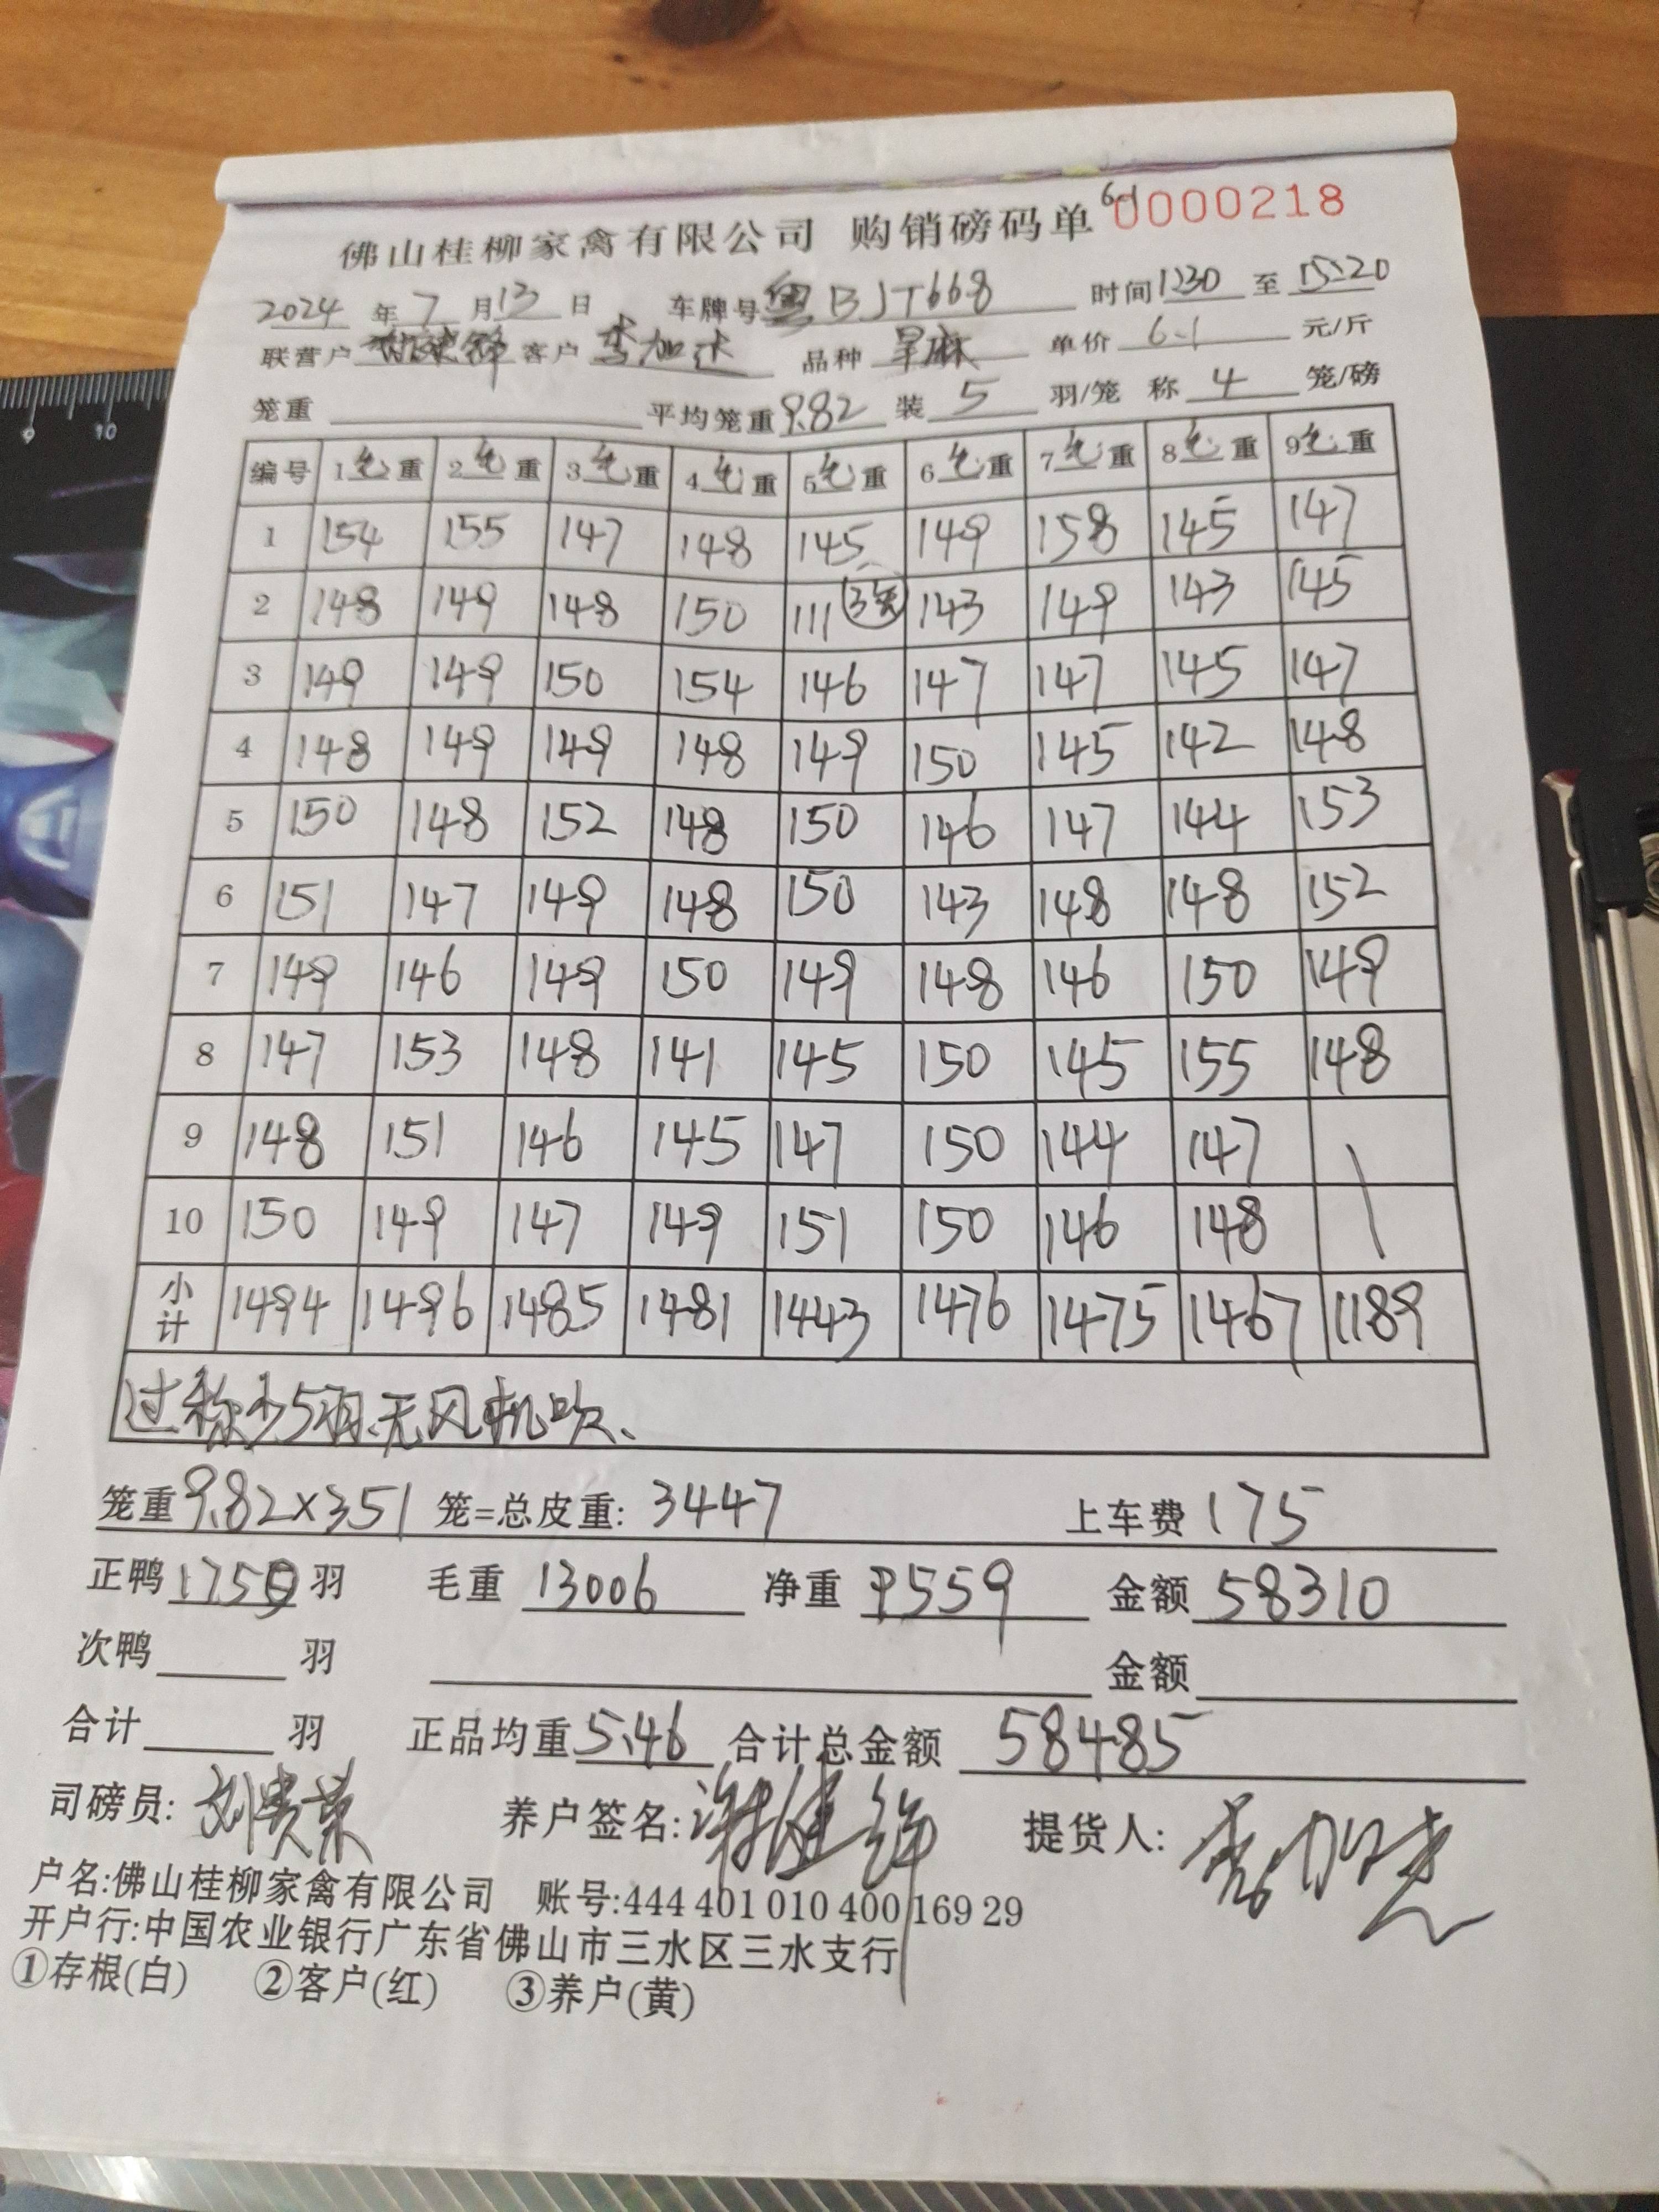 6-1
佛山桂柳家禽有限公司 购销磅码单 0000218
2024 年 7 月 13 日 车牌号 粤BJT668 时间 1230 至 15:20
联营户 客户 李加达 品种 旱麻 单价 6-1 元/斤
笼重 平均笼重 9.82 装 5 羽/笼 称 4 笼/磅
编号 1 毛 重 2 毛 重 3 毛 重 4 毛 重 5 毛 重 6 毛 重 7 毛 重 8 毛 重 9 毛 重
1 154 155 147 148 145 149 158 145 147
2 148 149 148 150 111 3笼 143 149 143 145
3 149 149 150 154 146 147 147 145 147
4 148 149 149 148 149 150 145 142 148
5 150 148 152 148 150 146 147 144 153
6 151 147 149 148 150 143 148 148 152
7 149 146 149 150 149 148 146 150 149
8 147 153 148 141 145 150 145 155 148
9 148 151 146 145 147 150 144 147
10 150 149 147 149 151 150 146 148
小计 1494 1496 1485 1481 1443 1476 1475 1467 1189
过称少5羽、无风机吹、
笼重 9.82×351 笼=总皮重: 3447 上车费 175
正鸭 1750 羽 毛重 13006 净重 9559 金额 58310
次鸭 羽 金额
合计 羽 正品均重 5.46 合计总金额 58485
司磅员: 刘贵荣 养户签名: 提货人:
户名:佛山桂柳家禽有限公司 账号:444 401 010 400 169 29
开户行:中国农业银行广东省佛山市三水区三水支行
①存根(白) ②客户(红) ③养户(黄)